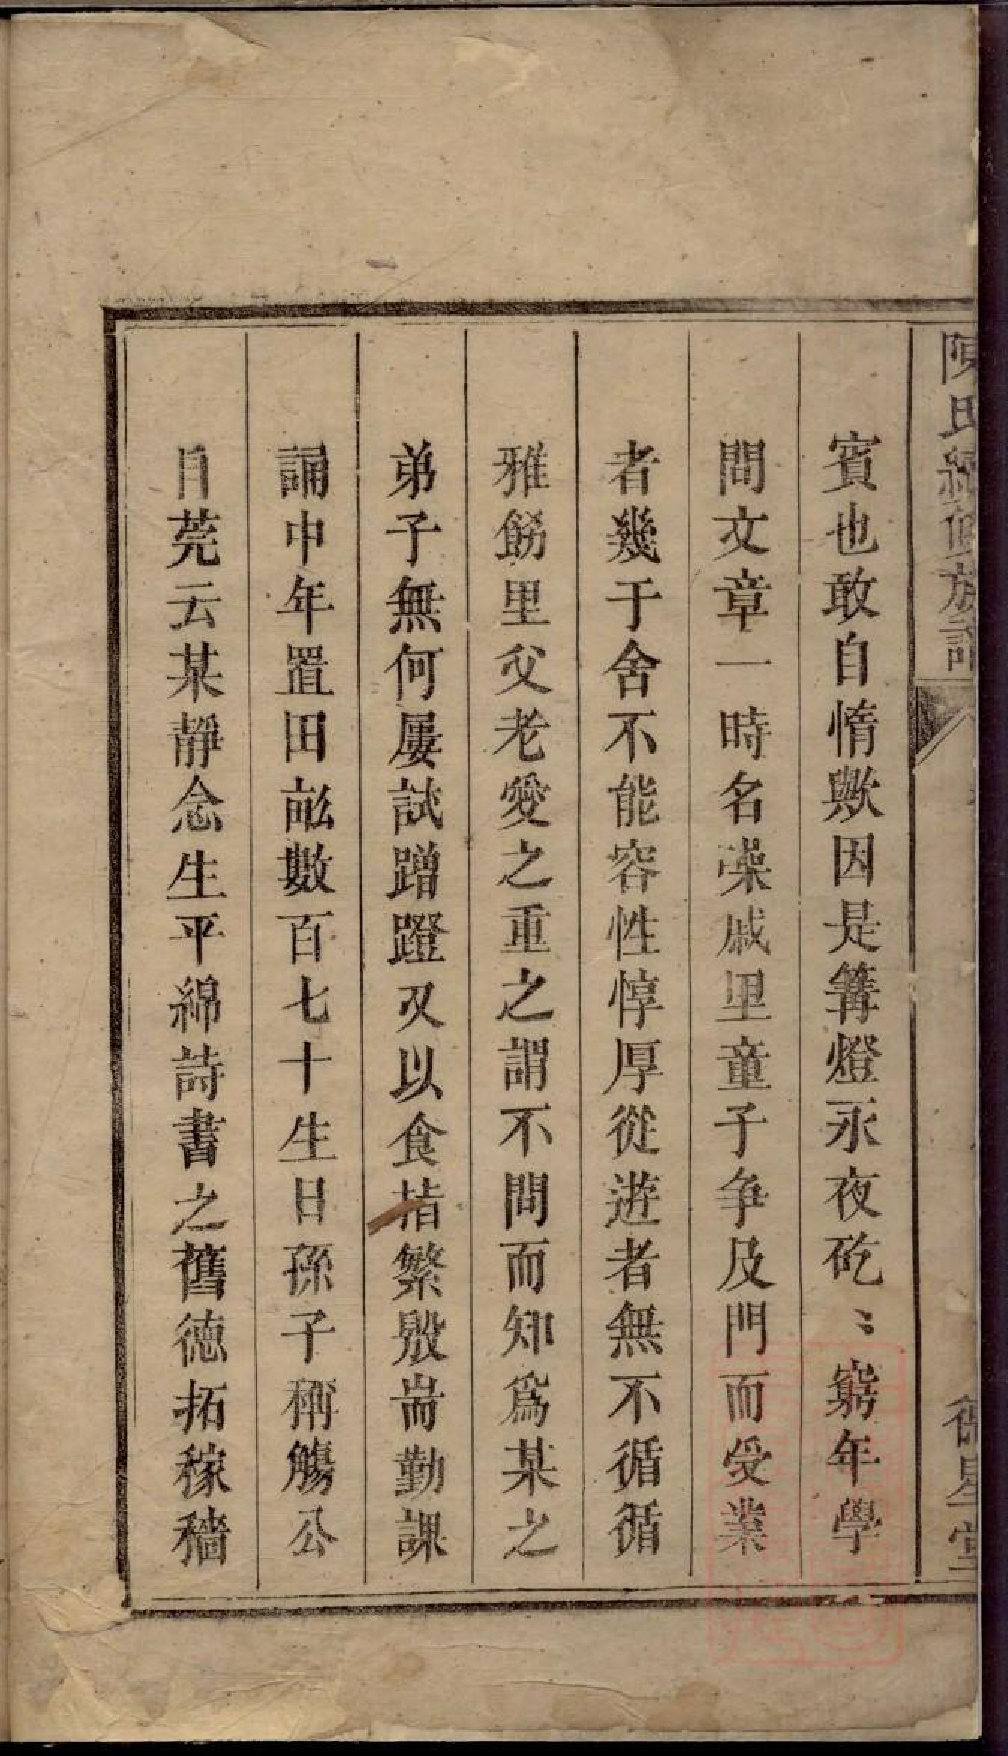 陳氏續修族譜
德星堂
賓也敢自惰歟因是篝燈永夜矻〻窮年學
問文章一時名噪戚里童子争及門而受業
者幾于舍不能容性惇厚從遊者無不循循
雅飭里父老愛之重之謂不問而知爲某之
弟子無何屢試蹭蹬又以食指繁殷耑勤課
誦中年置田畝數百七十生日孫子稱觴公
目莞云某靜念生平綿詩書之舊德拓稼穡